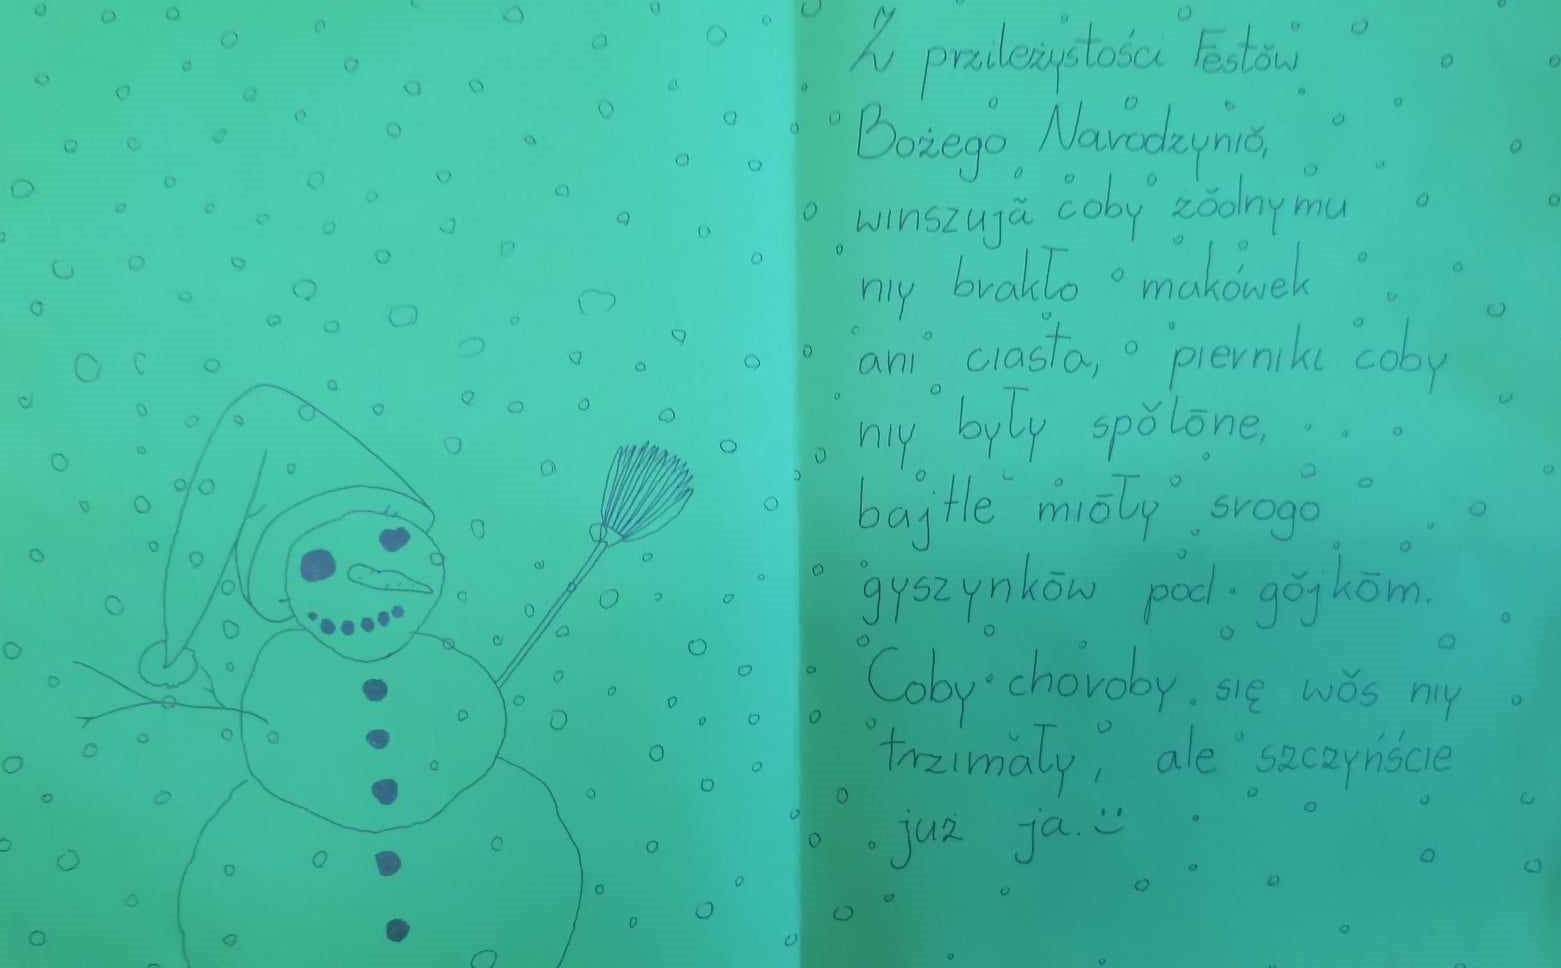 Z przileżystości Festōw
Bożego Narodzyniŏ,
winszujã coby żŏdnymu
niy brakło makówek
ani ciasta, pierniki coby
niy były spŏlōne,
bajtle miōły srogo
gyszynkōw pod gŏjkōm.
Coby choroby się wŏs niy
trzimały, ale szczyńście
już ja. :)